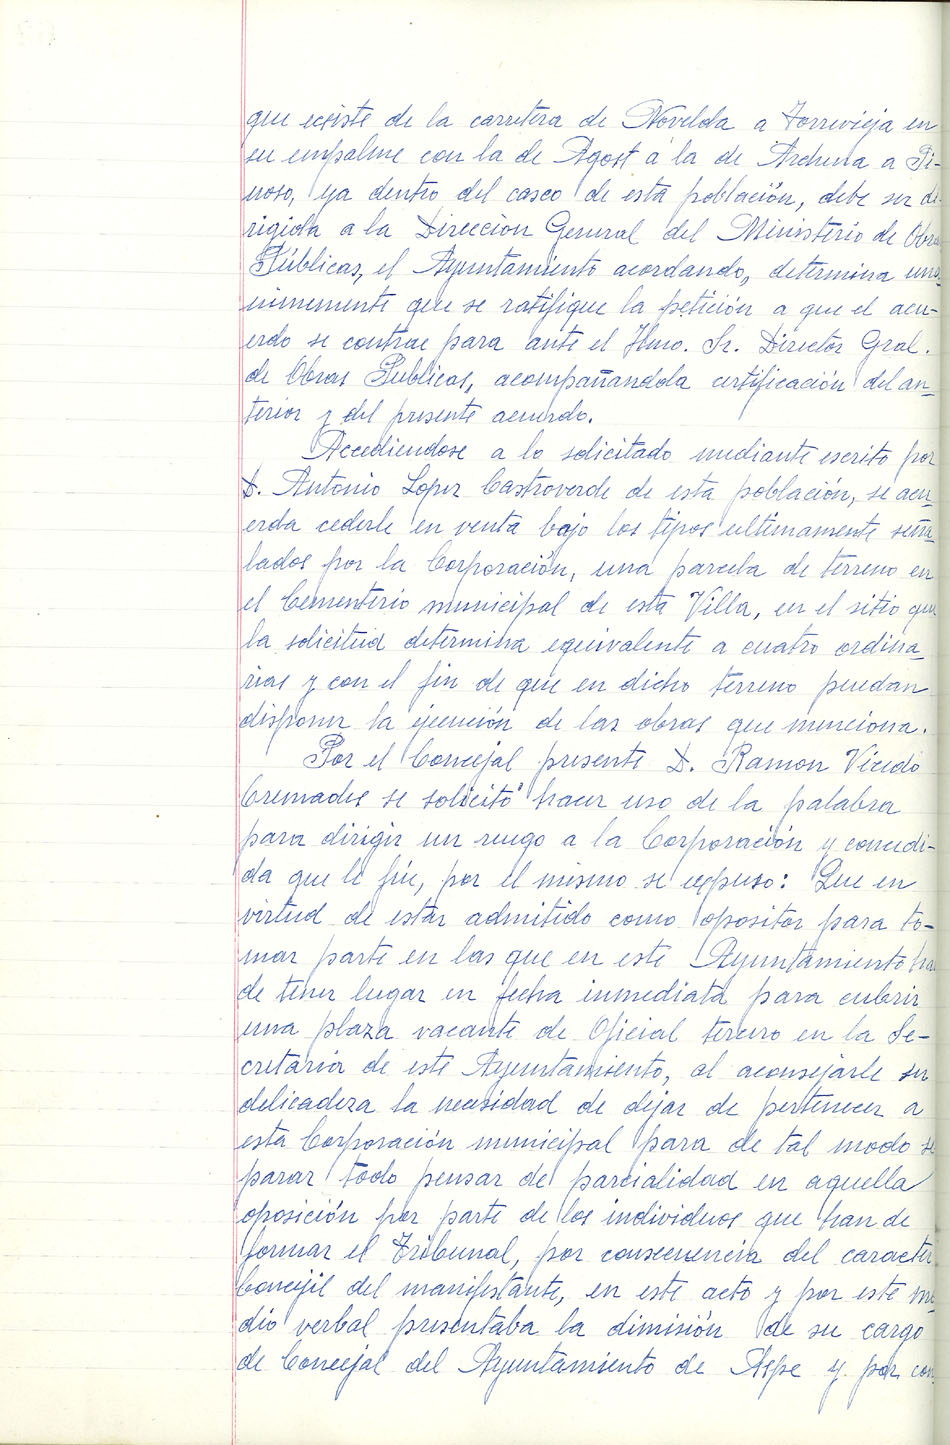 que existe de la carretera de Novelda a Torrevieja en
su empalme con la de Agost a la de Archena a Pi-
noso, ya dentro del casco de esta población, debe ser di-
rigida a la Dirección General del Ministerio de Obras
Públicas, el Ayuntamiento acordando, determina una-
nimemente que se ratifique la petición a que el acu-
erdo se contrae para ante el Ilmo. Sr. Director Gral.
de Obras Publicas, acompañandola certificación del an-
terior y del presente acuerdo.
Accediendose a lo solicitado mediante escrito por
D. Antonio Lopez Castroverde de esta población, se acu-
erda cederle en venta bajo los tipos ultimamente seña-
lados por la Corporación, una parcela de terreno en
el Cementerio municipal de esta Villa, en el sitio que
la solicitud determina equivalente a cuatro ordina-
rias y con el fin de que en dicho terreno puedan
disponer la ejecución de las obras que menciona.
Por el Concejal presente D. Ramon Vicedo
Cremades se solicitó hacer uso de la palabra
para dirigir un ruego a la Corporación y concedi-
da que le fué, por el mismo se expuso: Que en
virtud de estar admitido como opositor para to-
mar parte en las que en este Ayuntamiento han
de tener lugar en fecha inmediata para cubrir
una plaza vacante de Oficial tercero en la Se-
cretaria de este Ayuntamiento, al aconsejarle su
delicadeza la necesidad de dejar de pertenecer a
esta Corporación municipal para de tal modo se
parar todo pensar de parcialidad en aquella
oposición por parte de los individuos que han de
formar el Tribunal, por consecuencia del caracter
Concejil del manifestante, en este acto y por este me-
dio verbal presentaba la dimisión de su cargo
de Concejal del Ayuntamiento de Aspe y por con-